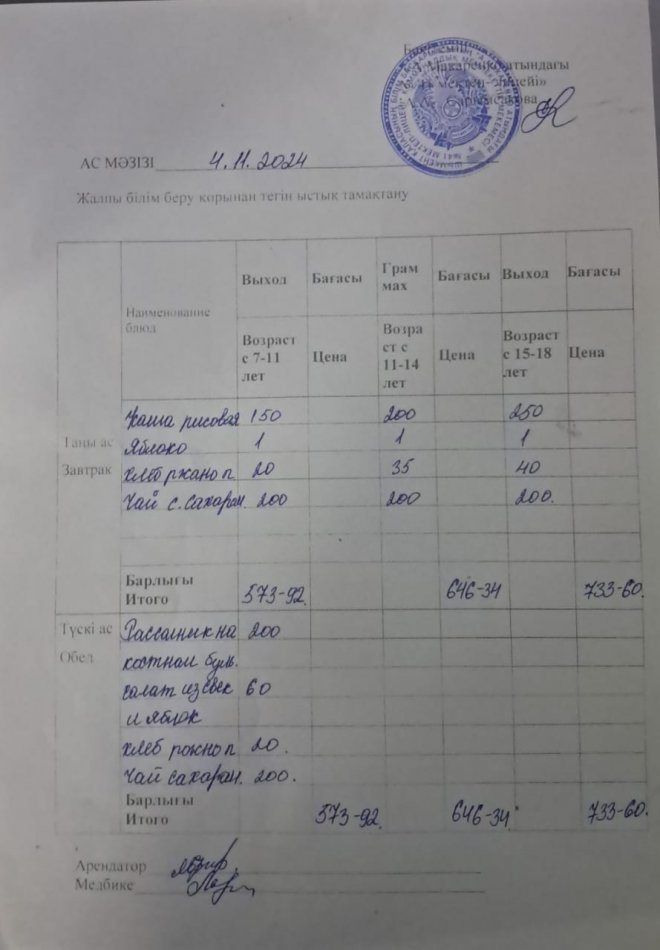 Бекітемін
А.Макаренко атындағы
№ 41 мектеп-лицейі»
АС МӘЗІЗІ 4.11.2024
Жалпы білім беру қорынан тегін ыстық тамақтану
Наименование блюд Выход Бағасы Грам мах Бағасы Выход Бағасы
Возраст с 7-11 лет Цена Возраст с 11-14 лет Цена Возраст с 15-18 лет Цена
Таңы ас
Завтрак
Каша рисовая 150 200 250
Яблоко 1 1 1
хлеб ржано п 20 35 40
Чай с. сахаром. 200 200 200.
Барлығы
Итого 573-92 646-34 733-60.
Түскі ас
Обед
Рассольник на 200
костном буль.
салат из свек 60
и яблок
хлеб ржано п 20.
Чай сахаром. 200.
Барлығы
Итого 573-92 646-34 733-60.
Арендатор
Медбике